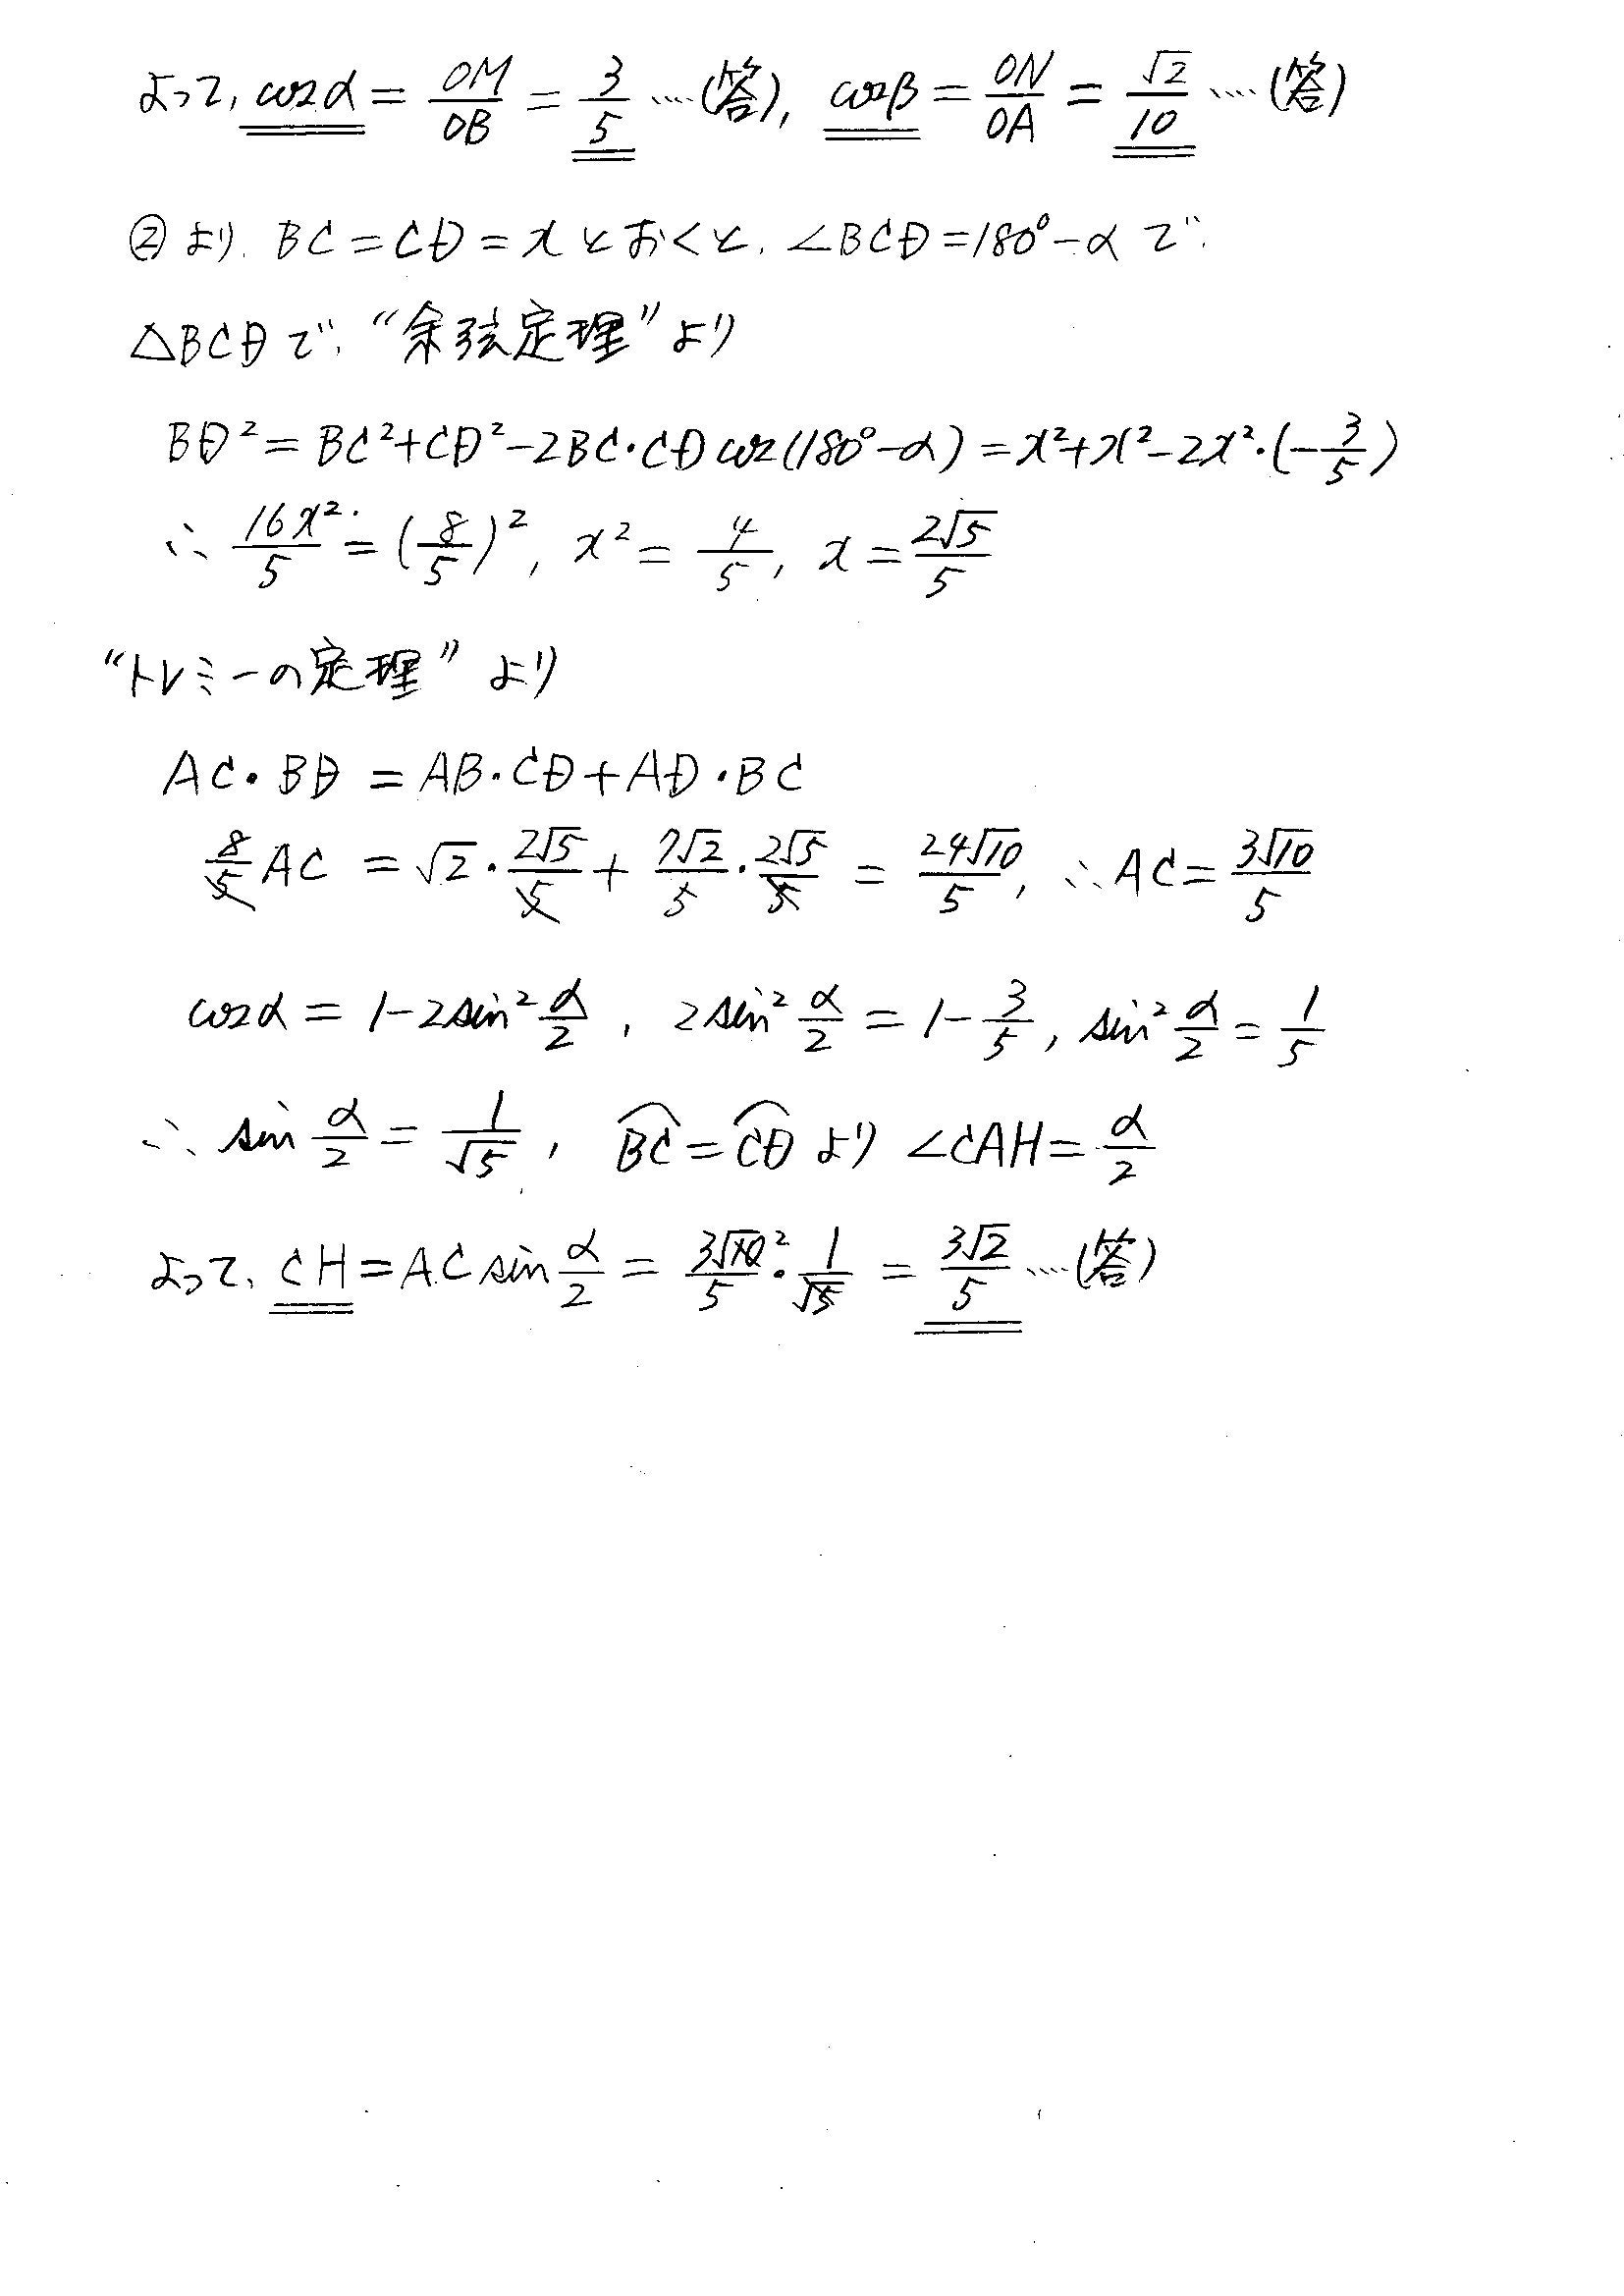 よって, cosα = OM/OB = 3/5 …(答), cosβ = ON/OA = √2/10 …(答)
②より. BC = CD = x とおくと. ∠BCD = 180° - α で.
△BCD で. “余弦定理” より
BD² = BC² + CD² - 2BC・CD cos(180° - α) = x² + x² - 2x²・(-3/5)
∴ 16x²/5 = (8/5)², x² = 4/5, x = 2√5/5
“トレミーの定理” より
AC・BD = AB・CD + AD・BC
8/5 AC = √2・2√5/5 + 7√2/5・2√5/5 = 24√10/5, ∴ AC = 3√10/5
cosα = 1 - 2sin² α/2, 2sin² α/2 = 1 - 3/5, sin² α/2 = 1/5
∴ sin α/2 = 1/√5, ⌒BC = ⌒CD より ∠CAH = α/2
よって, CH = AC sin α/2 = 3√10/5 ² ・ 1/√5 = 3√2/5 …(答)